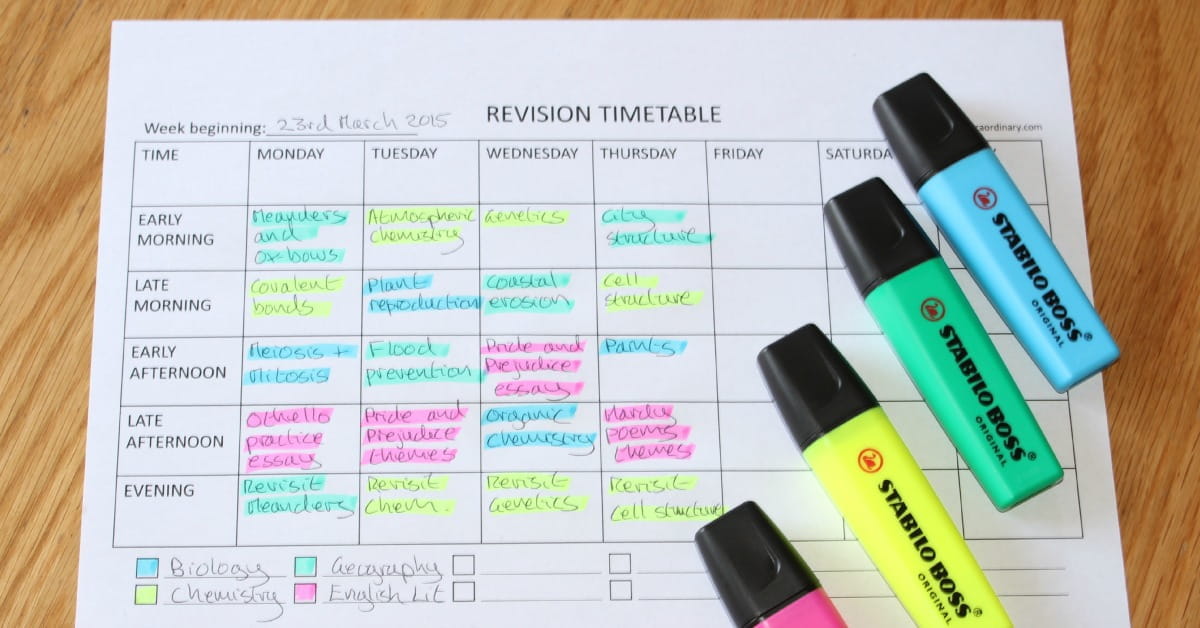 REVISION TIMETABLE
Week beginning: 23rd March 2015
raordinary.com
TIME MONDAY TUESDAY WEDNESDAY THURSDAY FRIDAY SATURDA
EARLY
MORNING
Meanders
and
Oxbows
Atmospheric
chemistry
Genetics
City
structure
LATE
MORNING
Covalent
bonds
Plant
reproduction
Coastal
erosion
Cell
structure
EARLY
AFTERNOON
Meiosis +
Mitosis
Flood
prevention
Pride and
Prejudice
essay
LATE
AFTERNOON
Othello
practice
essay
Pride and
Prejudice
themes
Organic
Chemistry
Hardy
poems
themes
EVENING
Revisit
Meanders
Revisit
Chem.
Revisit
Genetics
Revisit
Cell structure
Biology
Geography
Chemistry
English Lit
STABILO BOSS
ORIGINAL
STABILO BOSS
ORIGINAL
STABILO BOSS
ORIGINAL